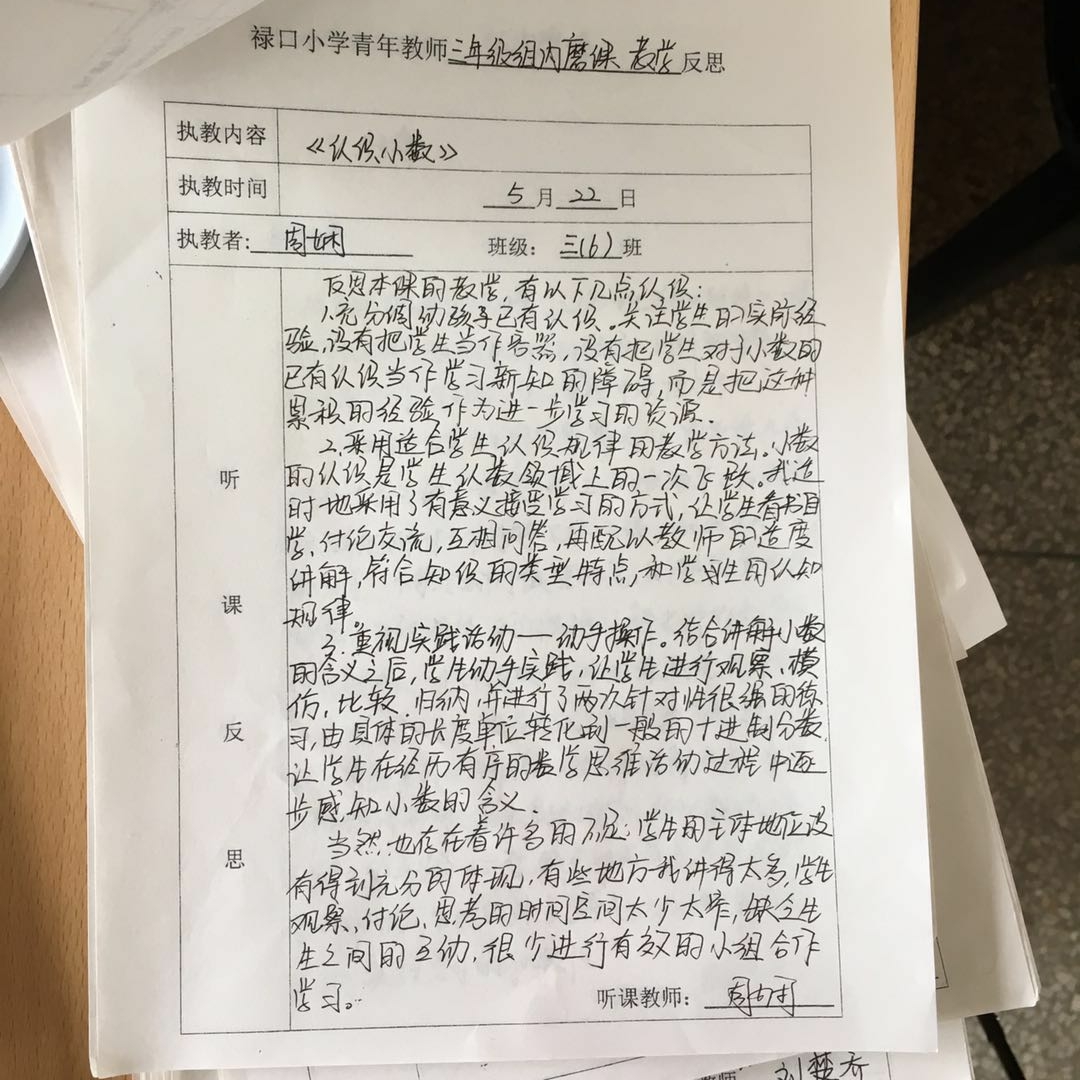 禄口小学青年教师三年级组内磨课 教学反思
执教内容 《认识小数》
执教时间 5月22日
执教者: 周娴 班级: 三(6)班
听课反思
反思本课的教学,有以下几点认识:
1.充分调动孩子已有认识。关注学生的实际经
验,没有把学生当作容器,没有把学生对于小数的
已有认识当作学习新知的障碍,而是把这种
累积的经验作为进一步学习的资源.
2.采用适合学生认识规律的教学方法。小数
的认识是学生认数领域上的一次飞跃。我适
时地采用了有意义接受学习的方式,让学生看书自
学、讨论交流,互相问答,再配以教师的适度
讲解,符合知识的类型特点,和学习生的认知
规律。
3.重视实践活动——动手操作。结合讲解小数
的含义之后,学生动手实践,让学生进行观察、模
仿,比较、归纳,并进行了两次针对性很强的练
习,由具体的长度单位转化到一般的十进制分数,
让学生在经历有序的数学思维活动过程中逐
步感知小数的含义.
当然也存在着许多的不足:学生的主体地位没
有得到充分的体现,有些地方我讲得太多,学生
观察、讨论、思考的时间空间太少太窄,缺乏生
生之间的互动,很少进行有效的小组合作
学习。
听课教师: 周娴
教师 刘楚乔